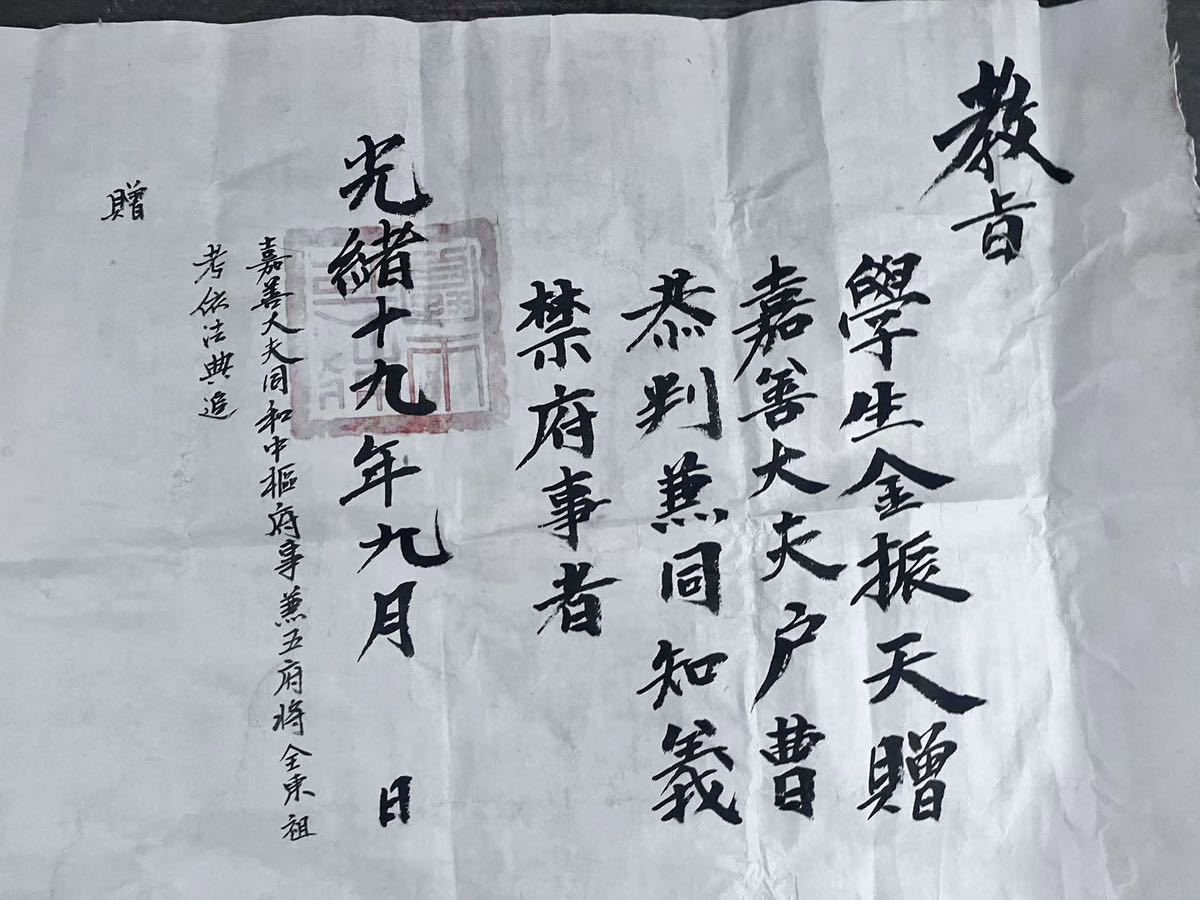 教旨
學生金振天贈
嘉善大夫户曹
恭判兼同知義
禁府事者
光緒十九年九月 日
嘉善大夫同和中樞府事兼五府將全東祖
考依法典追
贈